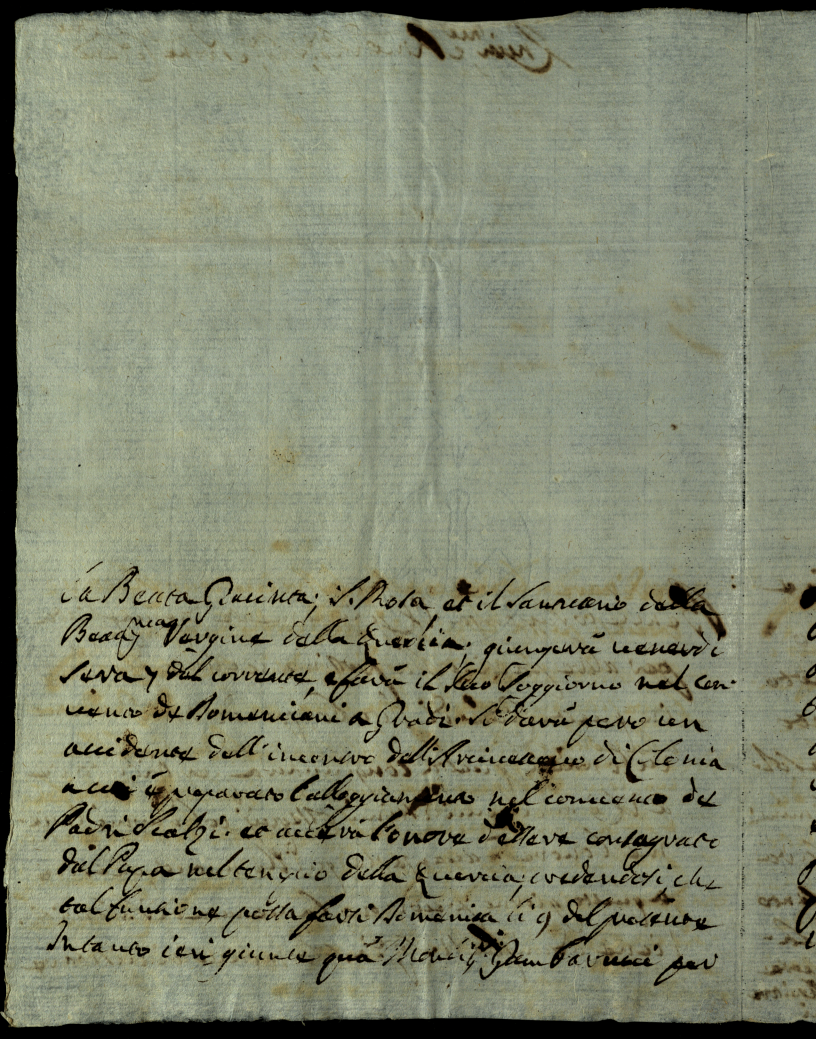 la Beata Giacinta; S. Rosa, et il Santuario della
Beatma Vergine della Quercia; giungerà venerdi
sera 7 del corrente, e farà il suo soggiorno nel con-
vento de Domenicani a Gradi. Si darà pero un
accidente dell'incontro dell'Arcivescovo di Colonia
a cui è preparato l'alloggiamento nel convento de
Padri Scalzi. et averà l'onore d'essere consagrato
dal Papa nel tempio della Quercia, credendosi, che
tal funzione possa farsi Domenica li 9 del presente
Intanto ieri giunse quà Gambarucci per